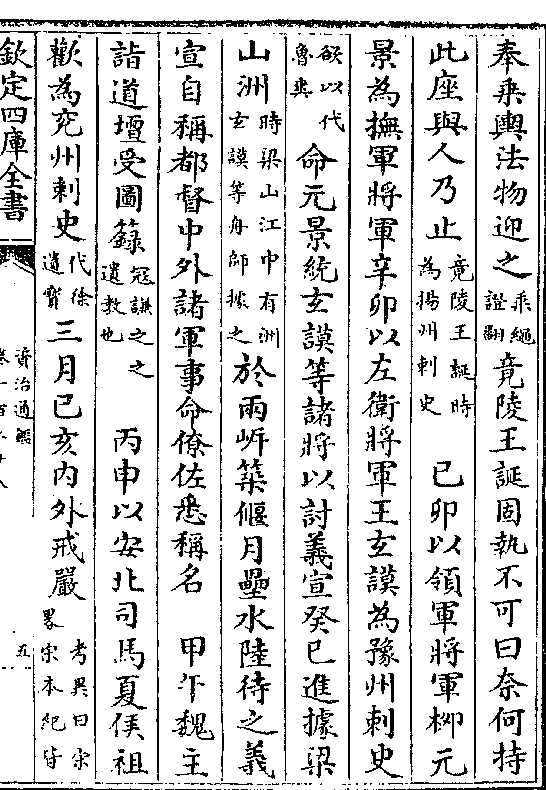 奉乘輿法物迎之乘繩證翻竟陵王誕固執不可曰奈何持
此座與人乃止竟陵王誕時為揚州刺史 己卯以領軍將軍柳元
景為撫軍將軍辛卯以左衛將軍王玄謨為豫州刺史
欲以代魯爽 命元景統玄謨等諸將以討義宣癸巳進據梁
山洲時梁山江中有洲玄謨等舟師據之於兩㟁築偃月壘水陸待之義
宣自稱都督中外諸軍事命僚佐悉稱名 甲午魏主
詣道壇受圖籙冦謙之之遺教也 丙申以安北司馬夏侯祖
歡為兖州刺史代徐遺寳三月己亥内外戒嚴考異曰宋畧宋本紀皆
欽定四庫全書
資治通鑑
五